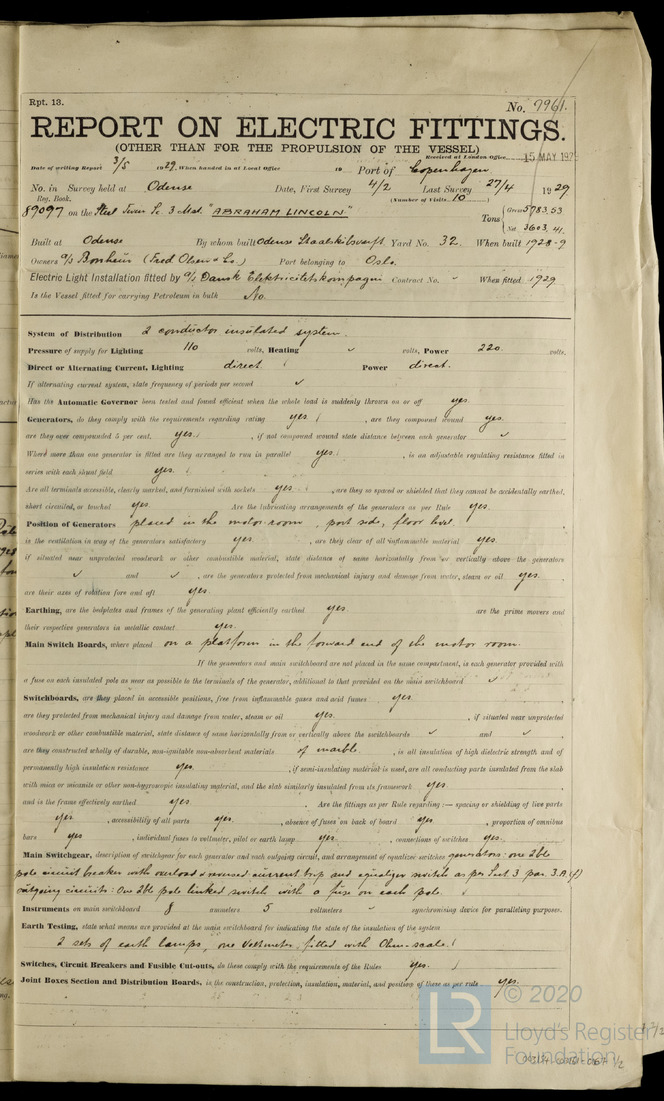 Rpt. 13.
No. 7961.
REPORT ON ELECTRIC FITTINGS.
(OTHER THAN FOR THE PROPULSION OF THE VESSEL)
Received at London Office 15 MAY 1929
Date of writing Report 3/5 1929. When handed in at Local Office 19 Port of Copenhagen
No. in Survey held at Odense Date, First Survey 4/2 Last Survey 27/4 1929
Reg. Book. (Number of Visits 10)
89097 on the Steel Twin Sc. 3 Mast. "ABRAHAM LINCOLN" Tons { Gross 5783.53
Net 3603.41
Built at Odense By whom built Odense Staalskibsværft Yard No. 32. When built 1928-9
Owners A/S Bonheur (Fred Olsen & Co.) Port belonging to Oslo.
Electric Light Installation fitted by A/S Dansk Elektricitetskompagni Contract No. When fitted 1929
Is the Vessel fitted for carrying Petroleum in bulk No.
System of Distribution 2 conductor insulated system.
Pressure of supply for Lighting 110 volts, Heating ✓ volts, Power 220 volts.
Direct or Alternating Current, Lighting direct Power direct.
If alternating current system, state frequency of periods per second ✓
Has the Automatic Governor been tested and found efficient when the whole load is suddenly thrown on or off yes.
Generators, do they comply with the requirements regarding rating yes , are they compound wound yes.
are they over compounded 5 per cent. yes. , if not compound wound state distance between each generator ✓
Where more than one generator is fitted are they arranged to run in parallel yes. , is an adjustable regulating resistance fitted in
series with each shunt field yes.
Are all terminals accessible, clearly marked, and furnished with sockets yes , are they so spaced or shielded that they cannot be accidentally earthed,
short circuited, or touched yes. Are the lubricating arrangements of the generators as per Rule yes.
Position of Generators placed in the motor-room, port side, floor level.
is the ventilation in way of the generators satisfactory yes. , are they clear of all inflammable material yes.
if situated near unprotected woodwork or other combustible material, state distance of same horizontally from or vertically above the generators
✓ and ✓ , are the generators protected from mechanical injury and damage from water, steam or oil yes.
are their axes of rotation fore and aft yes.
Earthing, are the bedplates and frames of the generating plant efficiently earthed yes. are the prime movers and
their respective generators in metallic contact yes.
Main Switch Boards, where placed on a platform in the forward end of the motor room.
If the generators and main switchboard are not placed in the same compartment, is each generator provided with
a fuse on each insulated pole as near as possible to the terminals of the generator, additional to that provided on the main switchboard ✓
Switchboards, are they placed in accessible positions, free from inflammable gases and acid fumes yes.
are they protected from mechanical injury and damage from water, steam or oil yes. , if situated near unprotected
woodwork or other combustible material, state distance of same horizontally from or vertically above the switchboards ✓ and ✓ ,
are they constructed wholly of durable, non-ignitable non-absorbent materials of marble. , is all insulation of high dielectric strength and of
permanently high insulation resistance yes. , if semi-insulating material is used, are all conducting parts insulated from the slab
with mica or micanite or other non-hygroscopic insulating material, and the slab similarly insulated from its framework yes.
and is the frame effectively earthed yes. Are the fittings as per Rule regarding:— spacing or shielding of live parts
yes , accessibility of all parts yes. , absence of fuses on back of board yes , proportion of omnibus
bars yes , individual fuses to voltmeter, pilot or earth lamp yes. , connections of switches yes.
Main Switchgear, description of switchgear for each generator and each outgoing circuit, and arrangement of equalizer switches generators: one dble
pole circuit breaker with overload & reversed current trip and equaliser switch as per Sect. 3 par. 3.A (f)
outgoing circuits: One dble pole linked switch with a fuse on each pole.
Instruments on main switchboard 8 ammeters 5 voltmeters ✓ synchronising device for paralleling purposes.
Earth Testing, state what means are provided at the main switchboard for indicating the state of the insulation of the system
2 sets of earth lamps, one Voltmeter, fitted with Ohm-scale.
Switches, Circuit Breakers and Fusible Cut-outs, do these comply with the requirements of the Rules Yes.
Joint Boxes Section and Distribution Boards, is the construction, protection, insulation, material, and position of these as per rule yes.
LR
© 2020
Lloyd's Register
Foundation
1/2